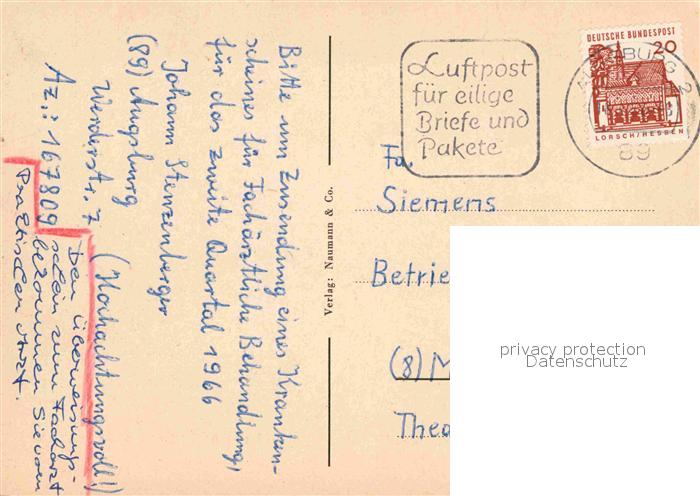 Bitte um Zusendung eines Kranken-
scheines für Fachärztliche Behandlung,
für das zweite Quartal 1966
Johann Stenzenberger
(89) Augsburg
Werderstr. 7 (Hochachtungsvoll!)
Az.: 167809
Den Überweisungs-
schein zum Facharzt
bekommen Sie vom
Praktischen Arzt.
Verlag: Naumann & Co.
Luftpost
für eilige
Briefe und
Pakete
DEUTSCHE BUNDESPOST
20
LORSCH/HESSEN
AUGSBURG 2
89
Fa.
Siemens
Betrie
(8) M
Thea
privacy protection
Datenschutz